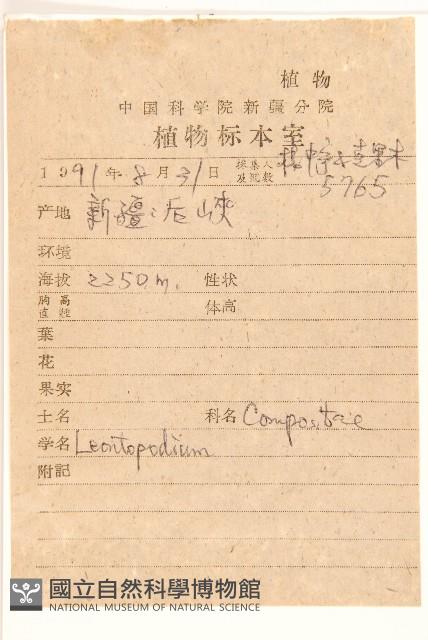 植物
中国科学院新疆分院
植物标本室
1991年8月31日 採集人及號數
5765
产地 新疆:后峡
环境
海拔 2250m. 性状
胸高直徑 体高
葉
花
果实
土名 科名 Compositae
学名 Leontopodium
附記
國立自然科學博物館
NATIONAL MUSEUM OF NATURAL SCIENCE